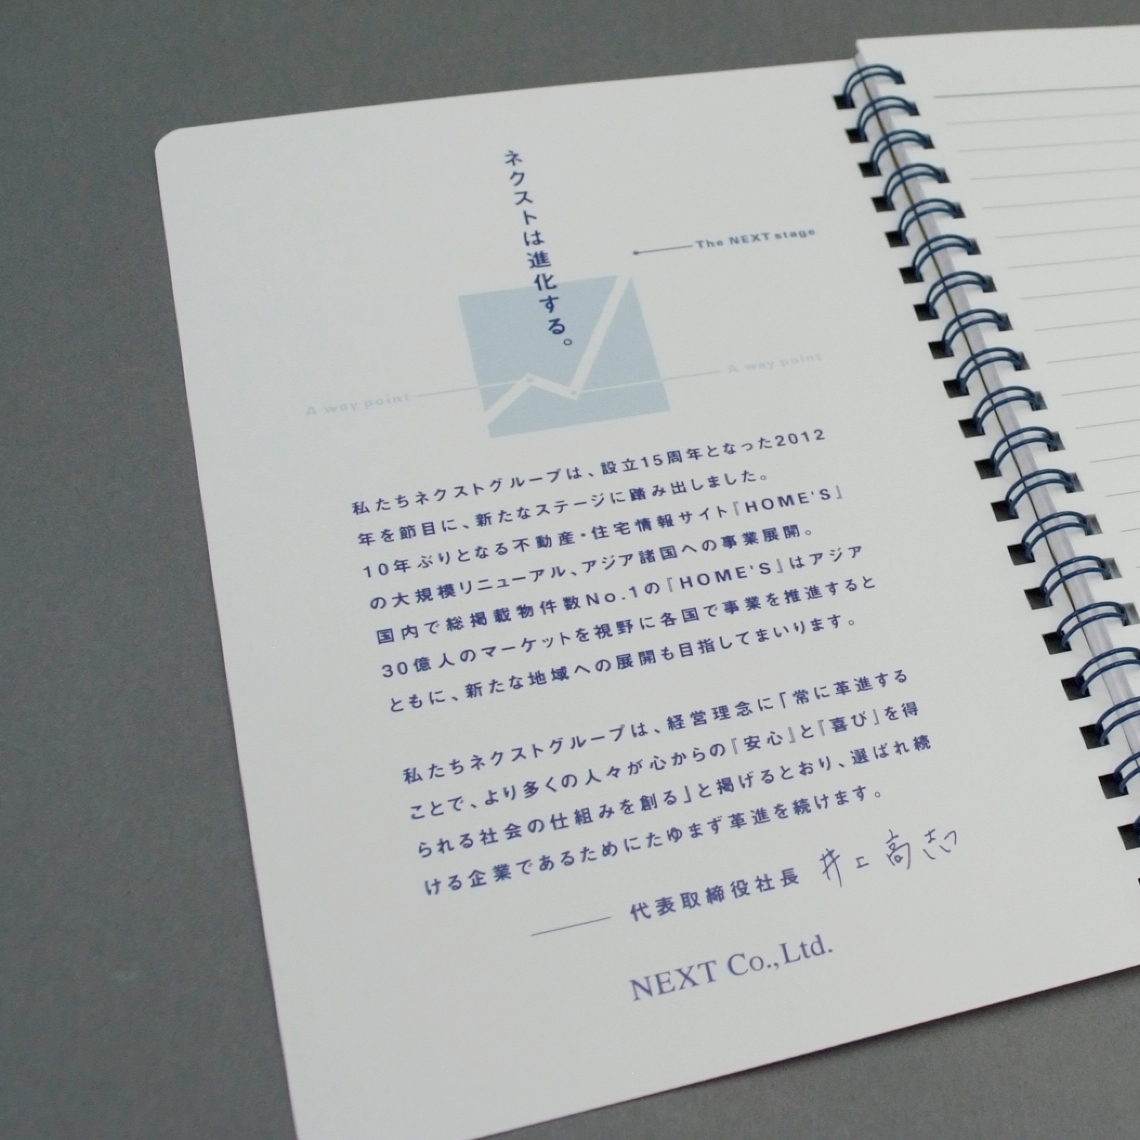 ネクストは進化する。
The NEXT stage
A way point
A way point
私たちネクストグループは、設立15周年となった2012
年を節目に、新たなステージに踏み出しました。
10年ぶりとなる不動産・住宅情報サイト『HOME'S』
の大規模リニューアル、アジア諸国への事業展開。
国内で総掲載物件数No.1の『HOME'S』はアジア
30億人のマーケットを視野に各国で事業を推進すると
ともに、新たな地域への展開も目指してまいります。
私たちネクストグループは、経営理念に「常に革進する
ことで、より多くの人々が心からの『安心』と『喜び』を得
られる社会の仕組みを創る」と掲げるとおり、選ばれ続
ける企業であるためにたゆまず革進を続けます。
代表取締役社長 井上高志
NEXT Co.,Ltd.